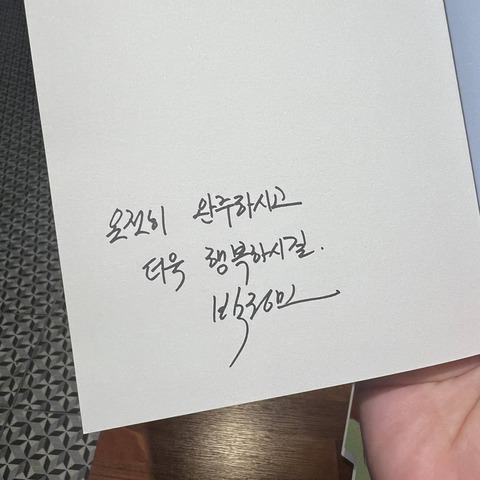 온전히 완주하시고
더욱 행복하시길.
박정민